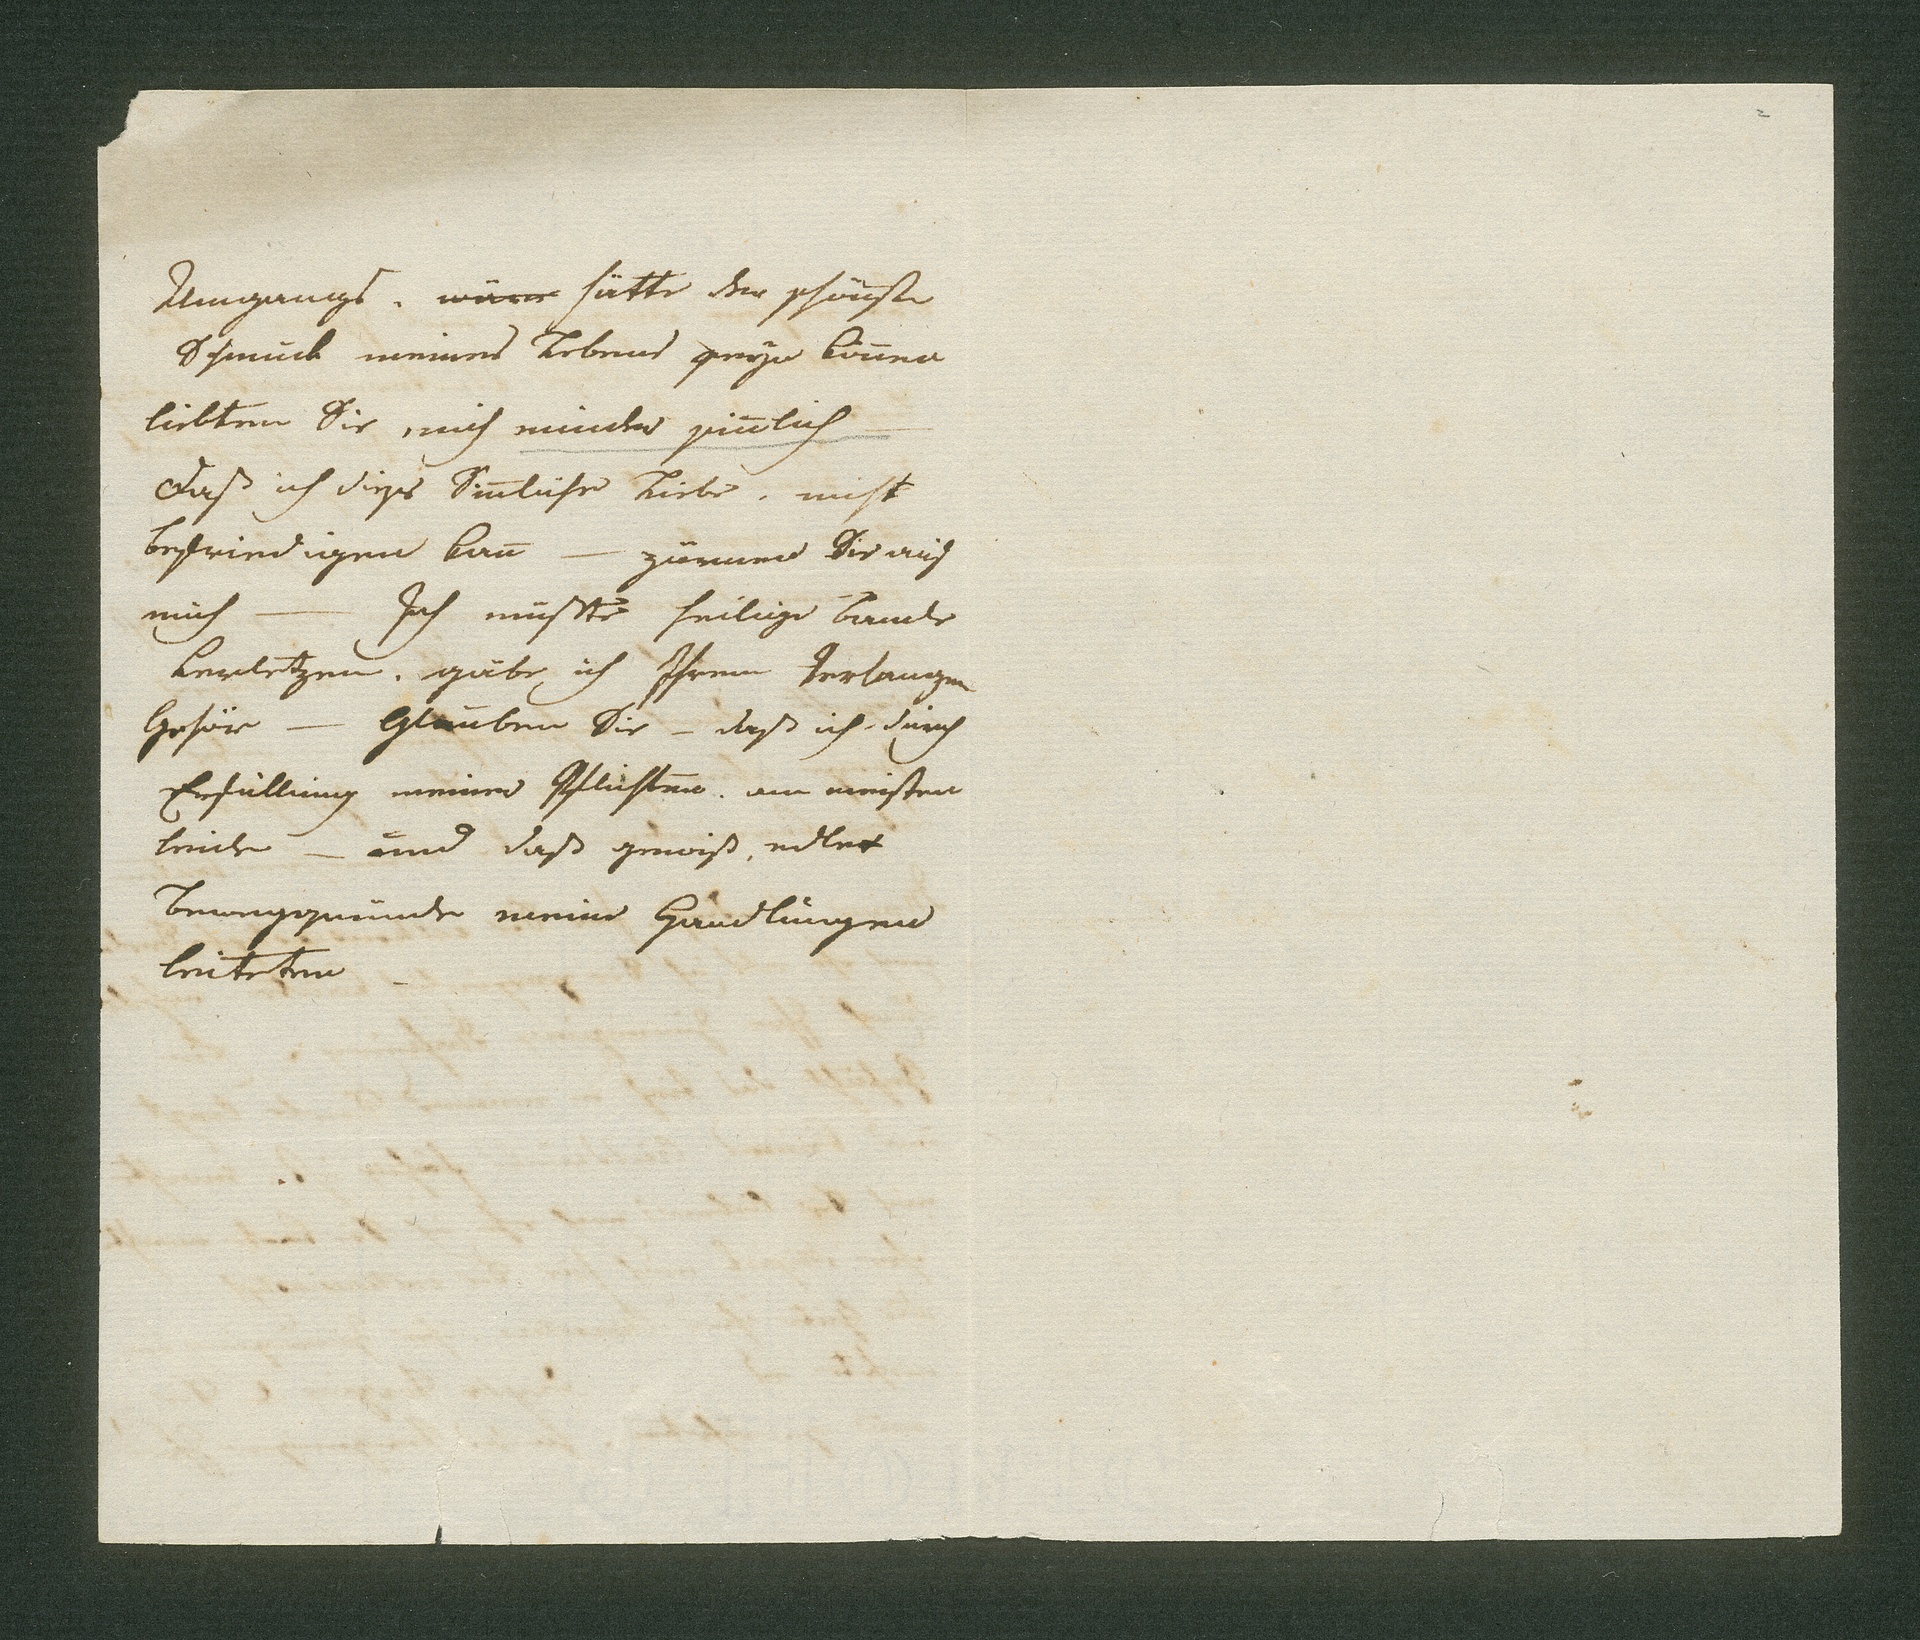 Umgangs, wäre hätte der schönste
Schmuck meines Lebens seyn können
liebten Sie mich minder sinlich —
daß ich diese Sinliche Liebe, nicht
befriedigen kan — zürnen Sie auf
mich — Ich müßte heilige Bande
verletzen, gäbe ich Ihrem Verlangen
Gehör — Glauben Sie — daß ich, durch
Erfüllung meiner Pflichten, am meisten
leide — und daß gewiß, edle
Beweggründe meine Handlungen
leiteten —